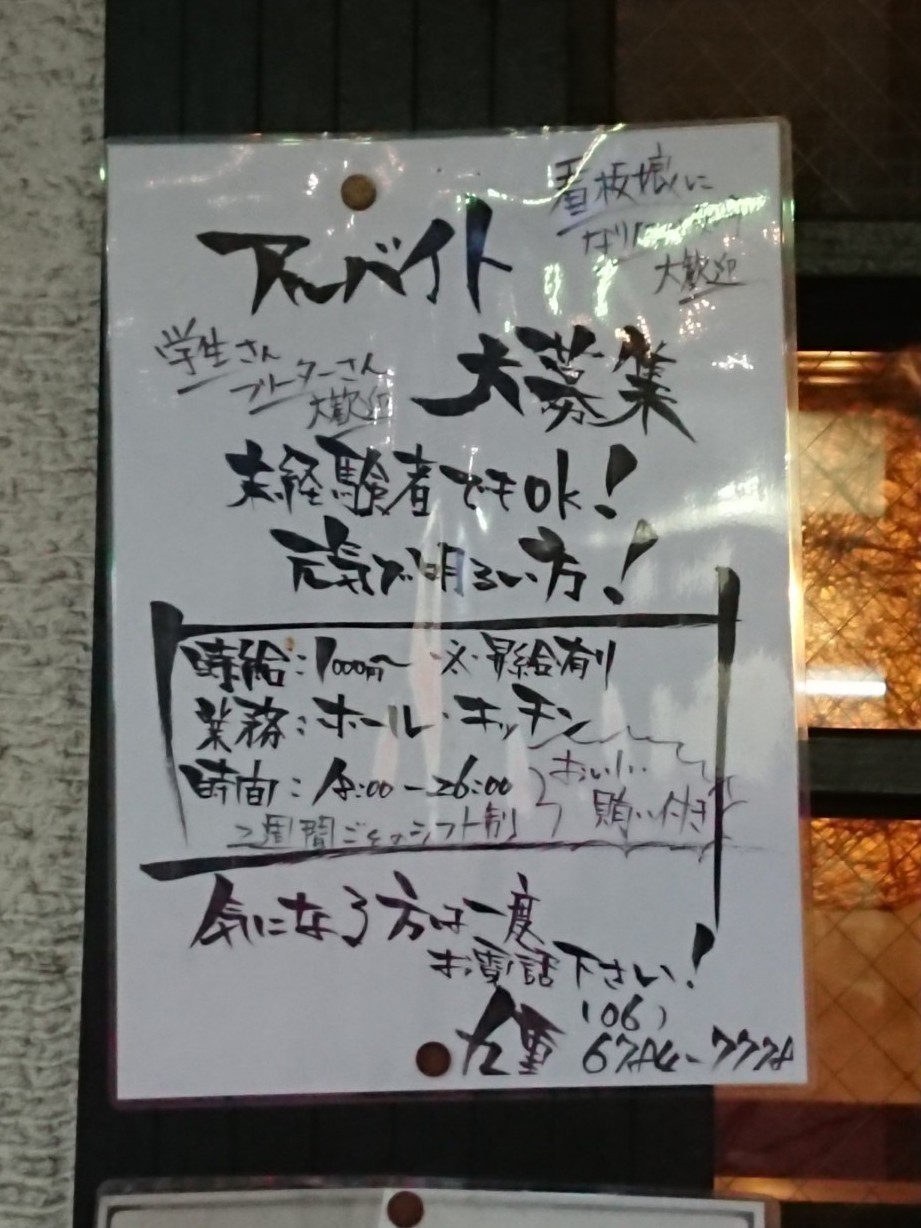 看板娘に
なりたい
大歓迎
アルバイト
大募集
学生さん
フリーターさん
大歓迎
未経験者でもOK!
元気で明るい方!
時給:1000円~ ※昇給有り
業務:ホール・キッチン
時間:18:00-26:00
2週間ごとのシフト制
おいしい
賄い付き
気になる方は一度
お電話下さい!
(06)
6784-7778